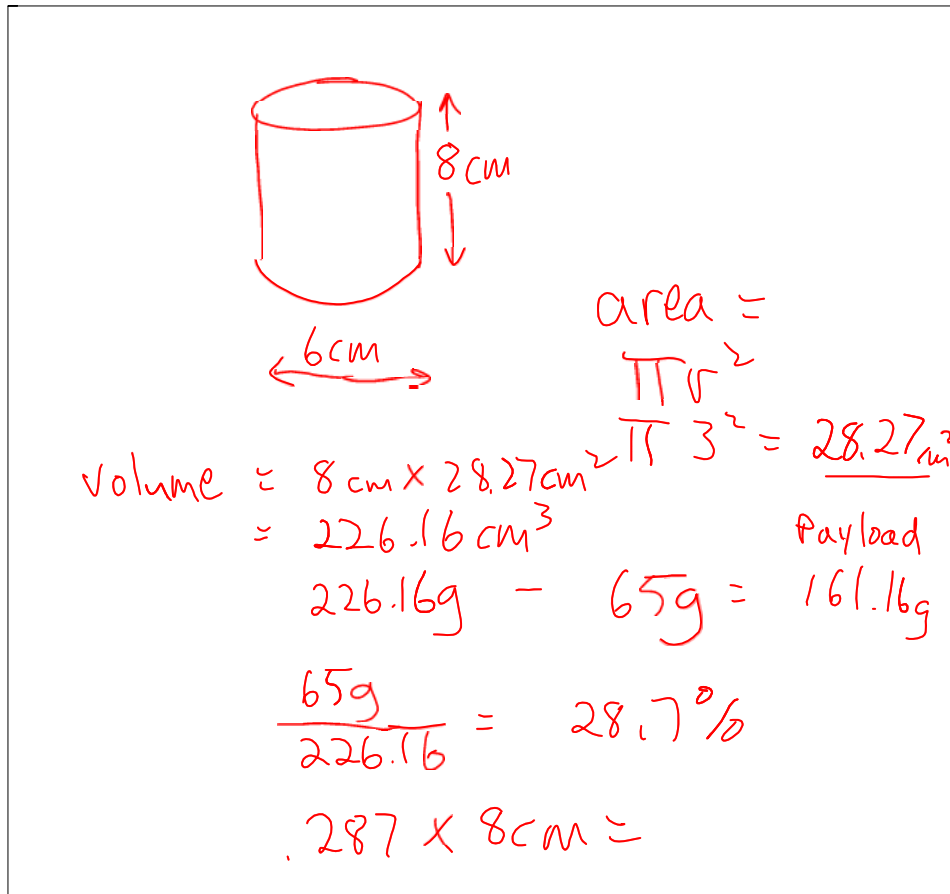 8cm
6cm
area =
πr²
π 3² = 28.27cm²
volume = 8cm x 28.27cm²
= 226.16 cm³
Payload
226.16g - 65g = 161.16g
65g
226.16
= 28.7%
.287 x 8cm =